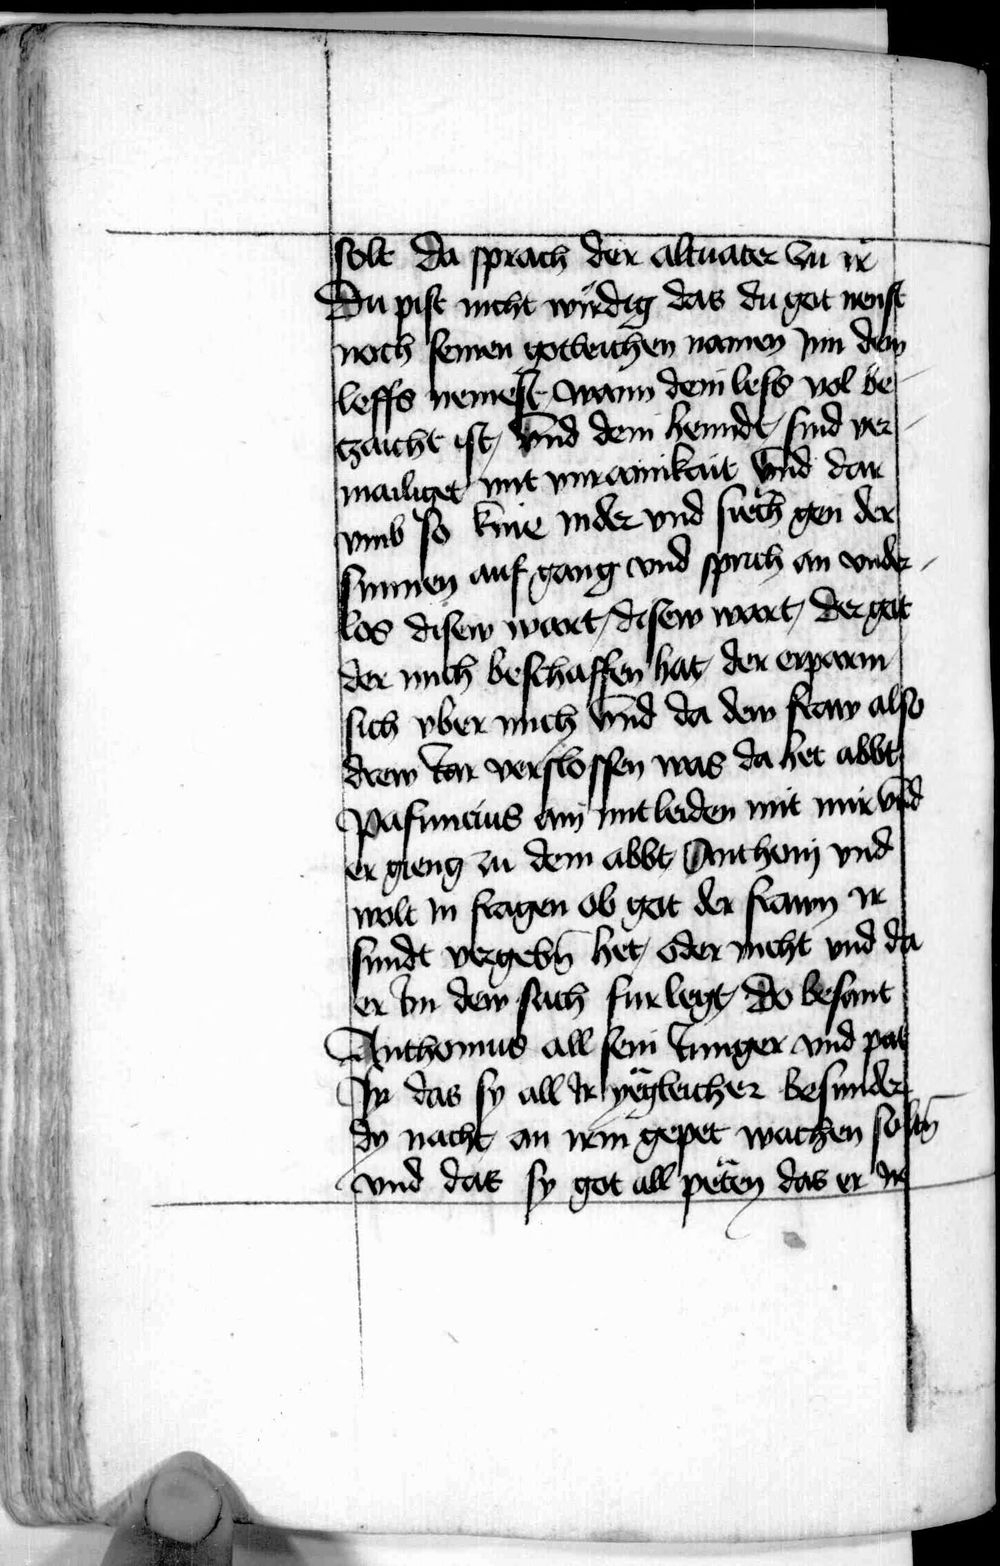 solt Da sprach der altuater zu ir
Du pist nicht wirdig das du got nenst
noch seinen gotleichen namen Inn dein
leffs nemest, wann dein lefs vol be
tzaicht ist, Vnd dein henndt, sind ver
mailiget mit vnrainikait Vnd dar
vmb so knie nider vnd siech gen der
sunnen auf gang vnd sprich an vnder
los disew wart, disew wart, Der got
der mich beschaffen hat der erparm
sich vber mich Vnd da dew fraw also
drew Iar verslossen was da het abbt
Pafuncius ain mitleiden mit mir Vnd
er gieng zu dem abbt Anthonij vnd
wolt in fragen ob got der frawn ir
sundt vergebn̄ het, oder nicht vnd da
er Im dew sach furlegt, Do besant
Anthonius all sein Iunger vnd pat
Sy das sy all Ir yëgleicher besunder
dy nacht, an irm gepet wachen soltn̄
vnd das sy got all pëten das er Ir